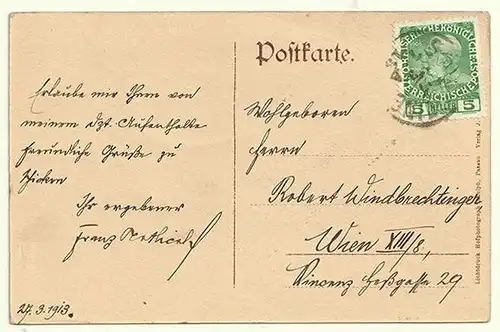 Postkarte.
Erlaube mir Ihnen von
meinem dzt. Aufenthalte
freundliche Grüße zu
schicken
Ihr ergebener
Franz
27.3.1913.
Wohlgeboren
Herrn
Robert Windbrechtinger
Wien XIII/8,
Vincenz Heßgasse 29
5 5
Lichtdruck Hofphotograph Passau Verlag